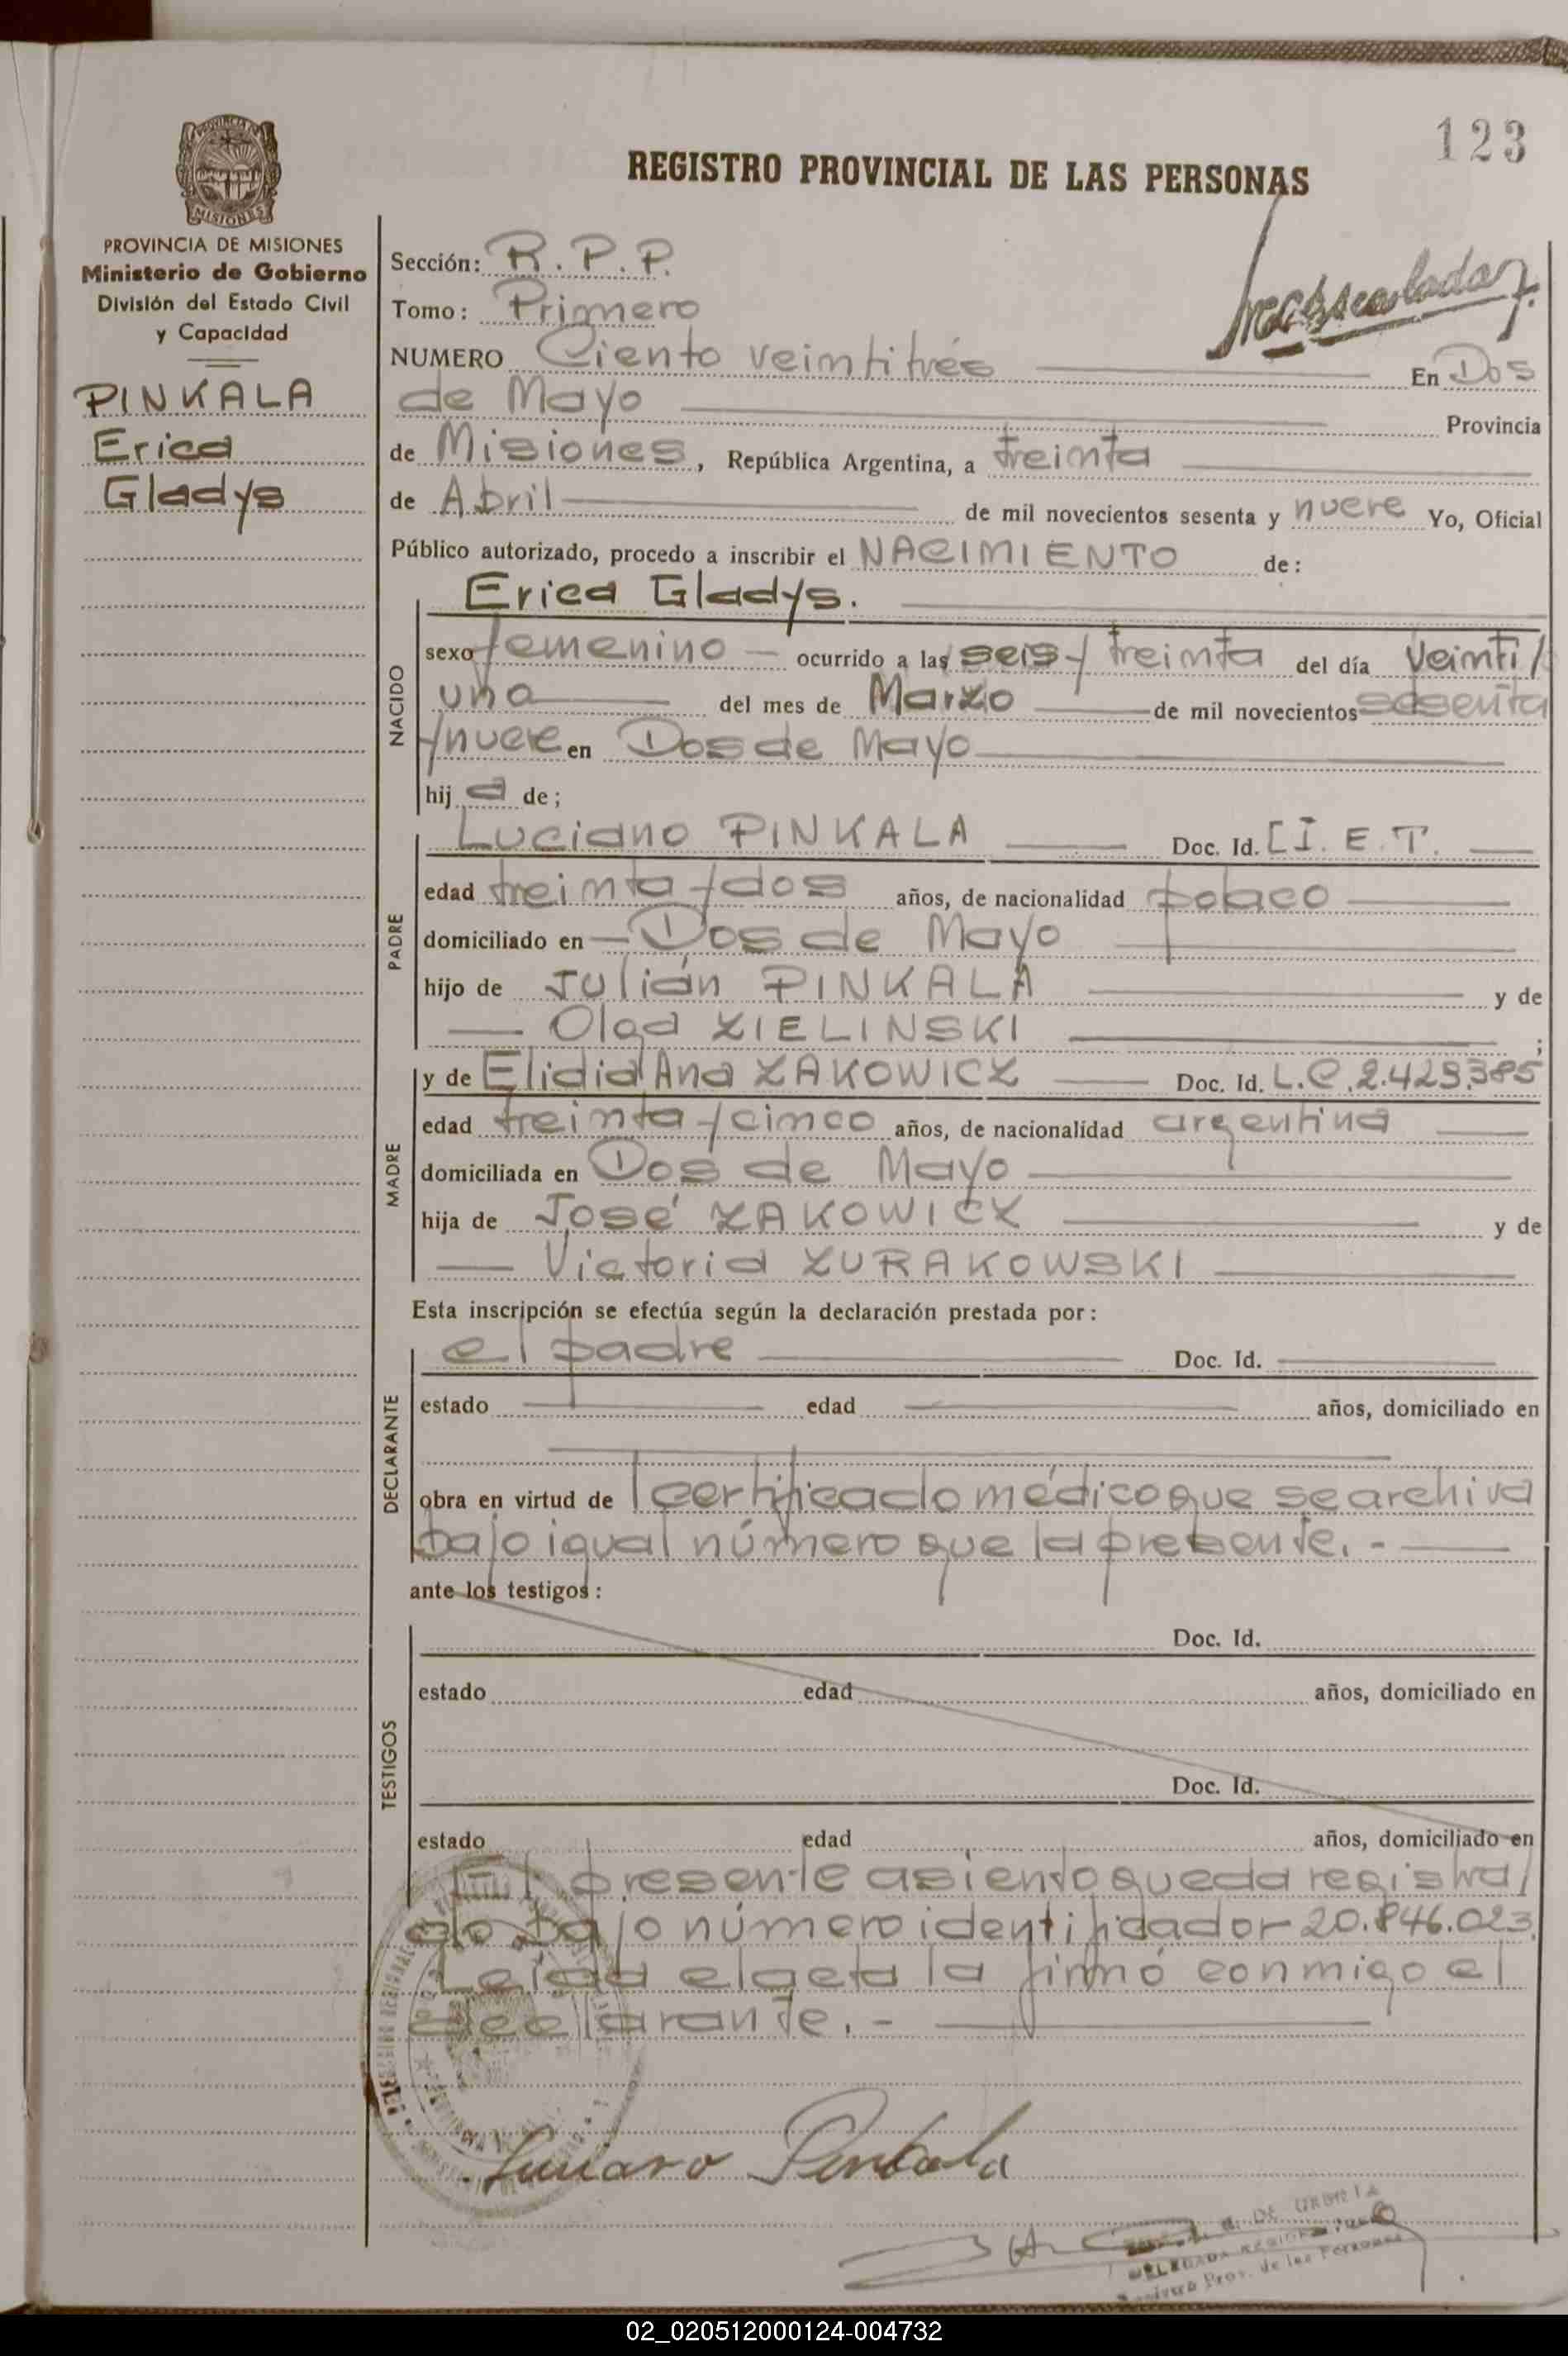 123
REGISTRO PROVINCIAL DE LAS PERSONAS
PROVINCIA DE MISIONES
Ministerio de Gobierno
División del Estado Civil
y Capacidad
PINKALA
Erica
Gladys
Sección: R.P.P.
Tomo: Primero
NUMERO Ciento veintitrés En Dos
de Mayo Provincia
de Misiones, República Argentina, a treinta
de Abril de mil novecientos sesenta y nueve Yo, Oficial
Público autorizado, procedo a inscribir el NACIMIENTO de:
NACIDO
Erica Gladys.
sexo femenino ocurrido a las seis y treinta del día veinti/
uno del mes de Marzo de mil novecientos sesenta
y nueve en Dos de Mayo
hij a de;
PADRE
Luciano PINKALA Doc. Id. C.I. E.T.
edad treinta y dos años, de nacionalidad polaco
domiciliado en Dos de Mayo
hijo de Julián PINKALA y de
Olga ZIELINSKI ;
MADRE
y de Elidia Ana ZAKOWICZ Doc. Id. L.C. 2.423.385
edad treinta y cinco años, de nacionalidad argentina
domiciliada en Dos de Mayo
hija de José ZAKOWICZ y de
Victoria ZURAKOWSKI
Esta inscripción se efectúa según la declaración prestada por:
DECLARANTE
el padre Doc. Id.
estado edad años, domiciliado en
obra en virtud de l certificado médico que se archiva
bajo igual número que la presente.-
ante los testigos:
TESTIGOS
Doc. Id.
estado edad años, domiciliado en
Doc. Id.
estado edad años, domiciliado en
El presente asiento queda registra/
do bajo número identificador 20.846.023
Leída el acta la firmó conmigo el
declarante.-
Luciano Pinkala
DELEGADA
Prov. de las Personas
02_020512000124-004732